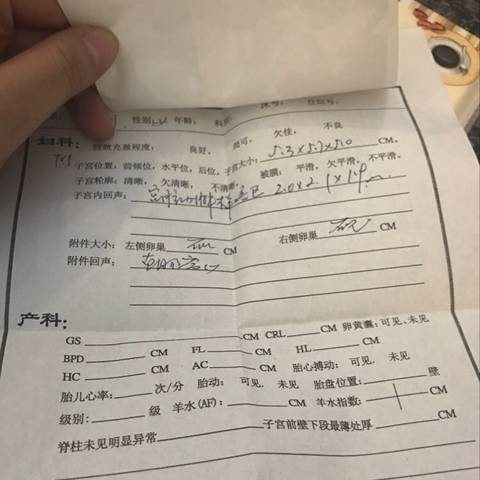 性别: 年龄: 科
妇科: 膀胱充盈程度: 良好, 尚可, 欠佳, 不良
子宫位置, 前倾位, 水平位, 后位, 子宫大小: 5.3×5.7×5.0 CM,
子宫轮廓: 清晰, 欠清晰, 不清晰, 被膜: 平滑, 欠平滑, 不平滑,
子宫内回声: 2.0×2.1×1.9
附件大小: 左侧卵巢 CM 右侧卵巢 CM
附件回声:
产科:
GS CM CRL CM 卵黄囊: 可见、未见
BPD CM FL CM HL CM
HC CM AC CM 胎心搏动: 可见. 未见
胎儿心率: 次/分 胎动: 可见. 未见 胎盘位置: 壁
级别: 级 羊水(AF): CM 羊水指数: CM
脊柱未见明显异常 子宫前壁下段最薄处厚 CM